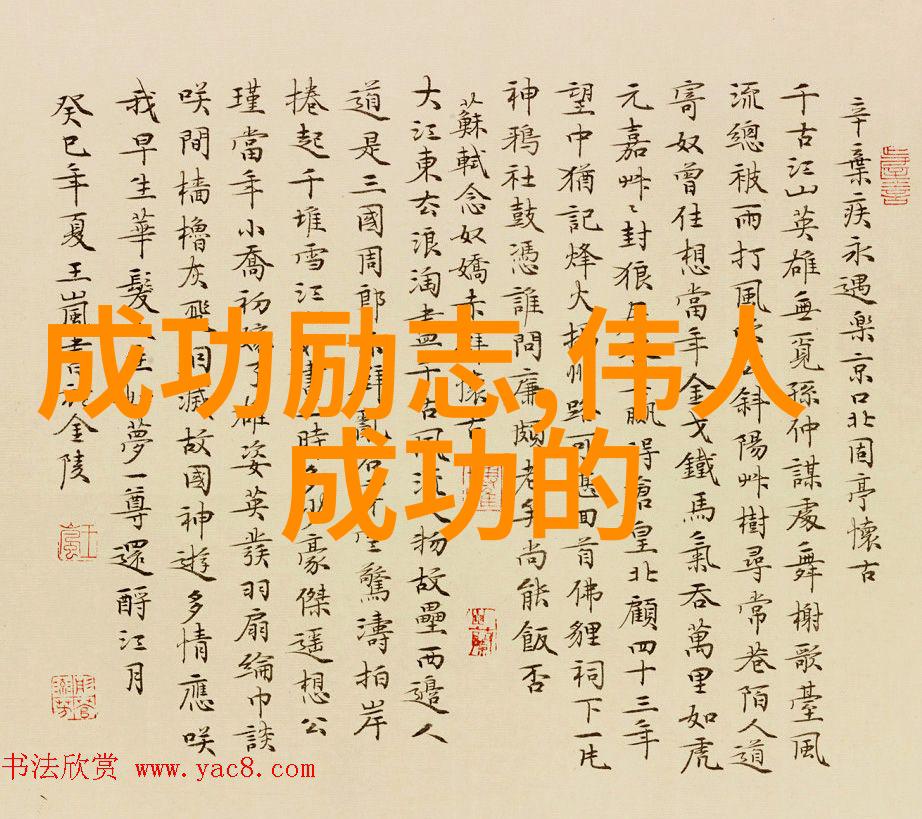 辛棄疾永遇樂京口北固亭懷古
千古江山英雄無覓孫仲謀處舞榭歌臺風
流總被雨打風 斜陽艸樹尋常巷陌人道
寄奴曾住想當年金戈鐵馬氣吞萬里如虎
元嘉艸〻封狼 贏得倉皇北顧四十三年
望中猶記烽火揚州路可堪回首佛貍祠下一片
神鴉社鼓憑誰問廉頗老矣尚能飯否
蘇軾念奴嬌赤壁懷古
大江東去浪淘盡千古風流人物故壘西邊人
道是三國周郎赤壁亂石穿空驚濤拍岸
捲起千堆雪江山如畫一時多少豪傑遙想公
瑾當年小喬初嫁了雄姿英發羽扇綸巾談
咲間檣櫓灰飛烟滅故國神遊多情應咲
我早生華髮 夢一尊還酹江月
癸巳年夏王嵐書於金陵
成功励志,伟人
成功的
书法欣赏 www.yac8.com